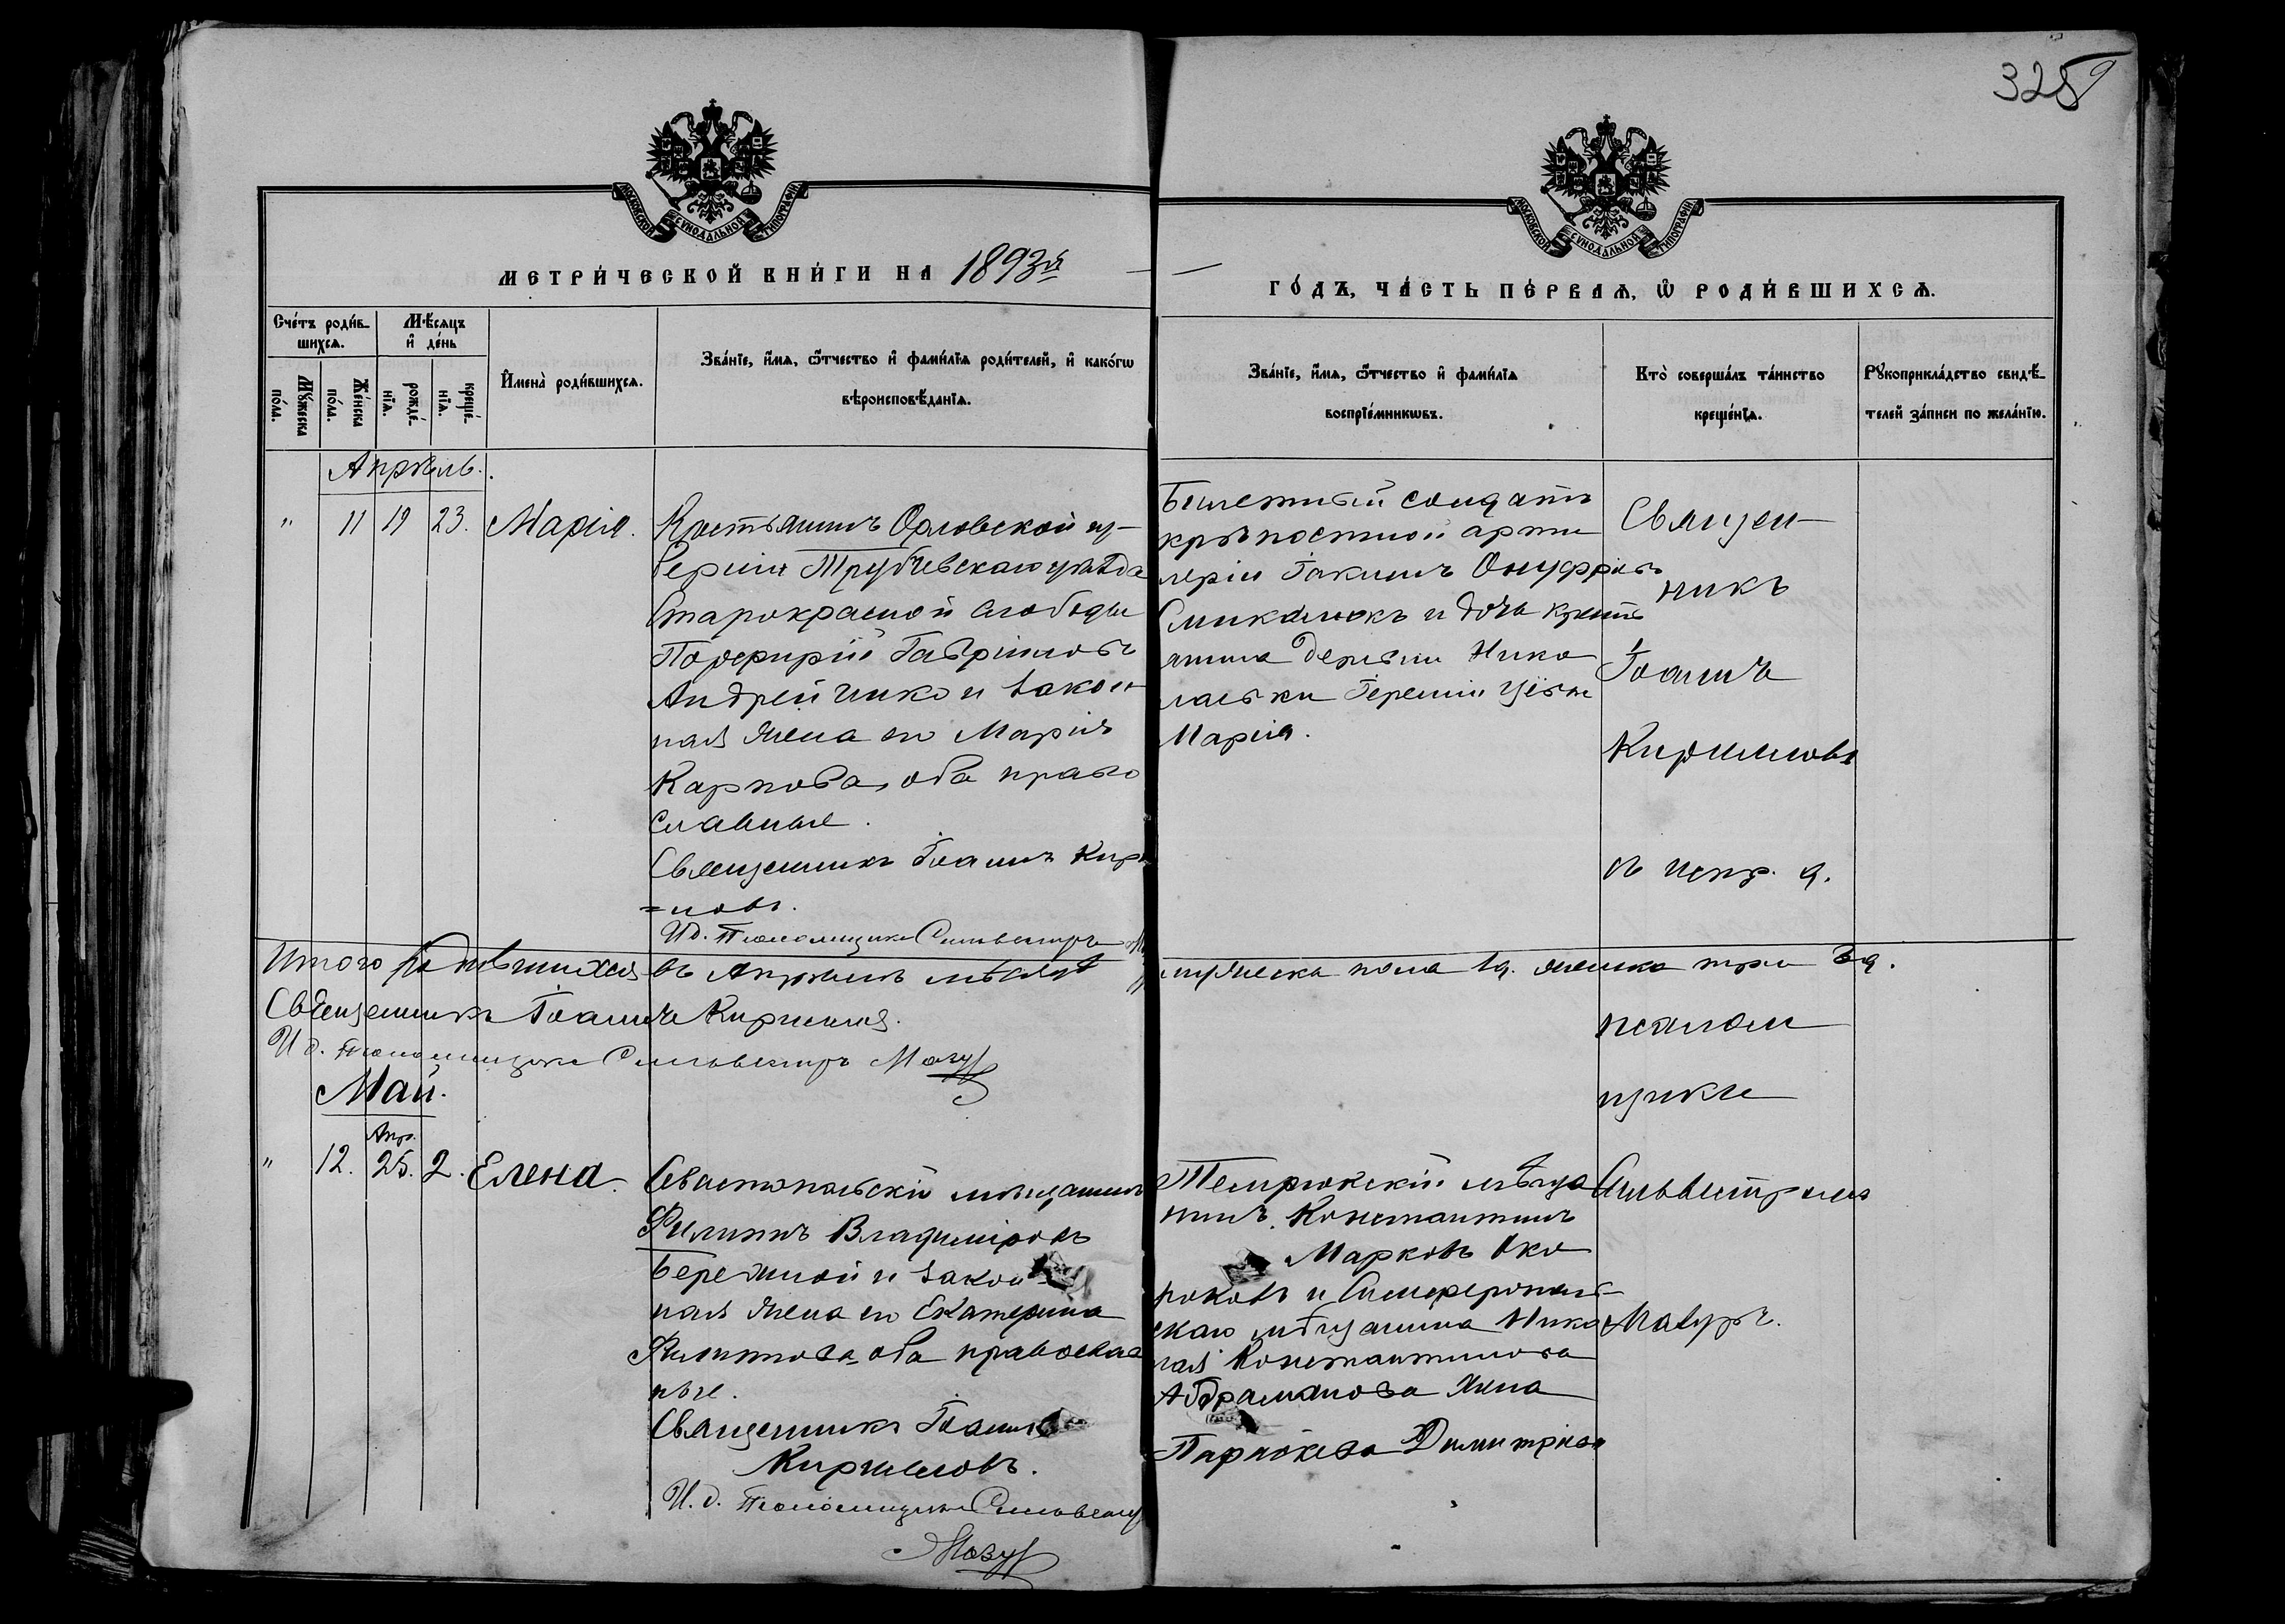 328
МОСКОВСКОЙ СУНОДАЛЬНОЙ ТИПОГРАФІИ
МОСКОВСКОЙ СУНОДАЛЬНОЙ ТИПОГРАФІИ
МЕТРИ́ЧЕСКОЙ КНИ́ГИ НА 1893й
ГО́ДЪ, ЧА́СТЬ ПЕ́РВАѦ, Ѡ҆ РОДИ́ВШИХСѦ.
Сче́тъ роди́в-
шихсѧ.
Мѣ́сѧцъ
и҆ де́нь
Мꙋ́жеска
по́ла.
Же́нска
по́ла.
рожде́-
нїѧ.
креще́-
нїѧ.
И҆мена̀ роди́вшихсѧ.
Зва́нїе, и҆́мѧ, ѻ҆́тчество и҆ фами́лїѧ роди́телей, и҆ како́гѡ
вѣроисповѣ́данїѧ.
Зва́нїе, и҆́мѧ, ѻ҆́тчество и҆ фами́лїѧ
воспрїе́мникѡвъ.
Кто̀ соверша́лъ та́инство
креще́нїѧ.
Рꙋкоприкла́дство свидѣ́-
телей за́писи по жела́нїю.
Апрѣль.
" 11 19 23. Марія.
Крестьянинъ Орловской гу-
берніи Трубчевскаго уѣзда
Старокрасной слободы
Порфирій Гавріиловъ
Андрейчико и закон
ная жена его Марія
Карпова, оба право
славные.
Священникъ Іоаннъ Кири
=ловъ.
И.д. Псаломщика Сильвестръ
Билетный солдатъ
крѣпостной арти
леріи Іакимъ Онуфріевъ
и дочь кресть
янина деревни Нико
лаевки Іереміи
Марія.
Священ-
никъ
Іоаннъ
Кирилловъ
съ испр. д.
псалом
щика
Сильвестромъ
Мазуръ.
Итого родившихся въ Апрѣлѣ мѣсяцѣ мужеска пола 1д. женска три 3д.
Священникъ Іоаннъ Кириллов.
И.д. Псаломщика Сильвестръ Мазур
Май.
Апр.
" 12. 25. 2. Елена.
Севастопольскій мѣщанинъ
Филиппъ Владиміровъ
Бережной и закон
ная жена его Екатерина
Филиппова, оба православ
ные.
Священникъ Іоаннъ
Кирилловъ.
И.д. Псаломщика Сильвестр
Мазур
Темрюкскій мѣща
нинъ Константинъ
Марковъ Око
роковъ и Симферополь-
скаго мѣщанина Нико
лая Константинова
Абдраманова жена
Димитріева